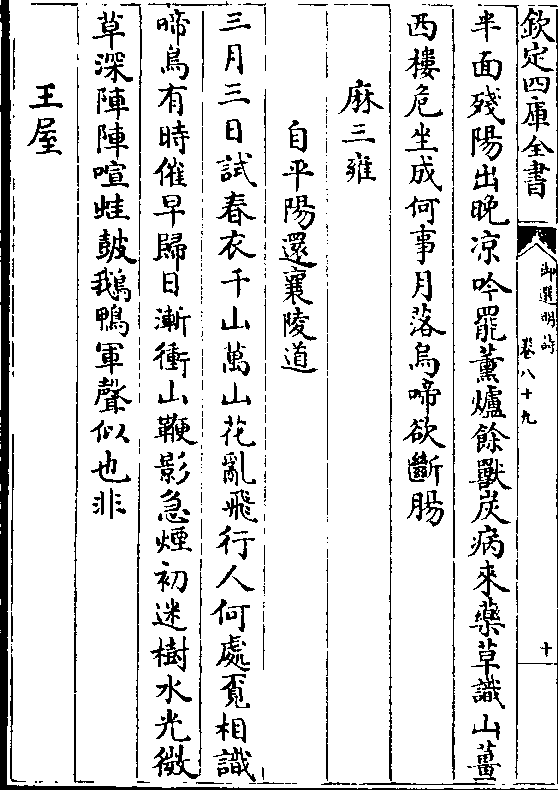 欽定四庫全書
御選明詩
卷八十九
十
半面殘陽出晚凉吟罷薰爐餘獸炭病來藥草識山薑
西樓危坐成何事月落烏啼欲斷腸
麻三雍
自平陽還襄陵道
三月三日試春衣千山萬山花亂飛行人何處覔相識
啼鳥有時催早歸日漸衝山鞭影急煙初迷樹水光微
草深陣陣喧蛙鼓鵝鴨軍聲似也非
王屋